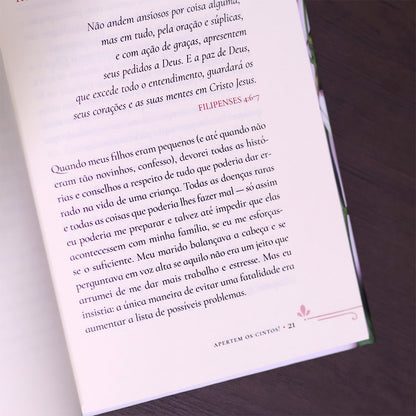 Não andem ansiosos por coisa alguma,
mas em tudo, pela oração e súplicas,
e com ação de graças, apresentem
seus pedidos a Deus. E a paz de Deus,
que excede todo o entendimento, guardará os
seus corações e as suas mentes em Cristo Jesus.
FILIPENSES 4.6-7
Quando meus filhos eram pequenos (e até quando não
eram tão novinhos, confesso), devorei todas as histó-
rias e conselhos a respeito de tudo que poderia dar er-
rado na vida de uma criança. Todas as doenças raras
e todas as coisas que poderia lhes fazer mal — só assim
eu poderia me preparar e talvez até impedir que elas
acontecessem com minha família, se eu me esforças-
se o suficiente. Meu marido balançava a cabeça e se
perguntava em voz alta se aquilo não era um jeito que
arrumei de me dar mais trabalho e estresse. Mas eu
insistia: a única maneira de evitar uma fatalidade era
aumentar a lista de possíveis problemas.
APERTEM OS CINTOS! • 21